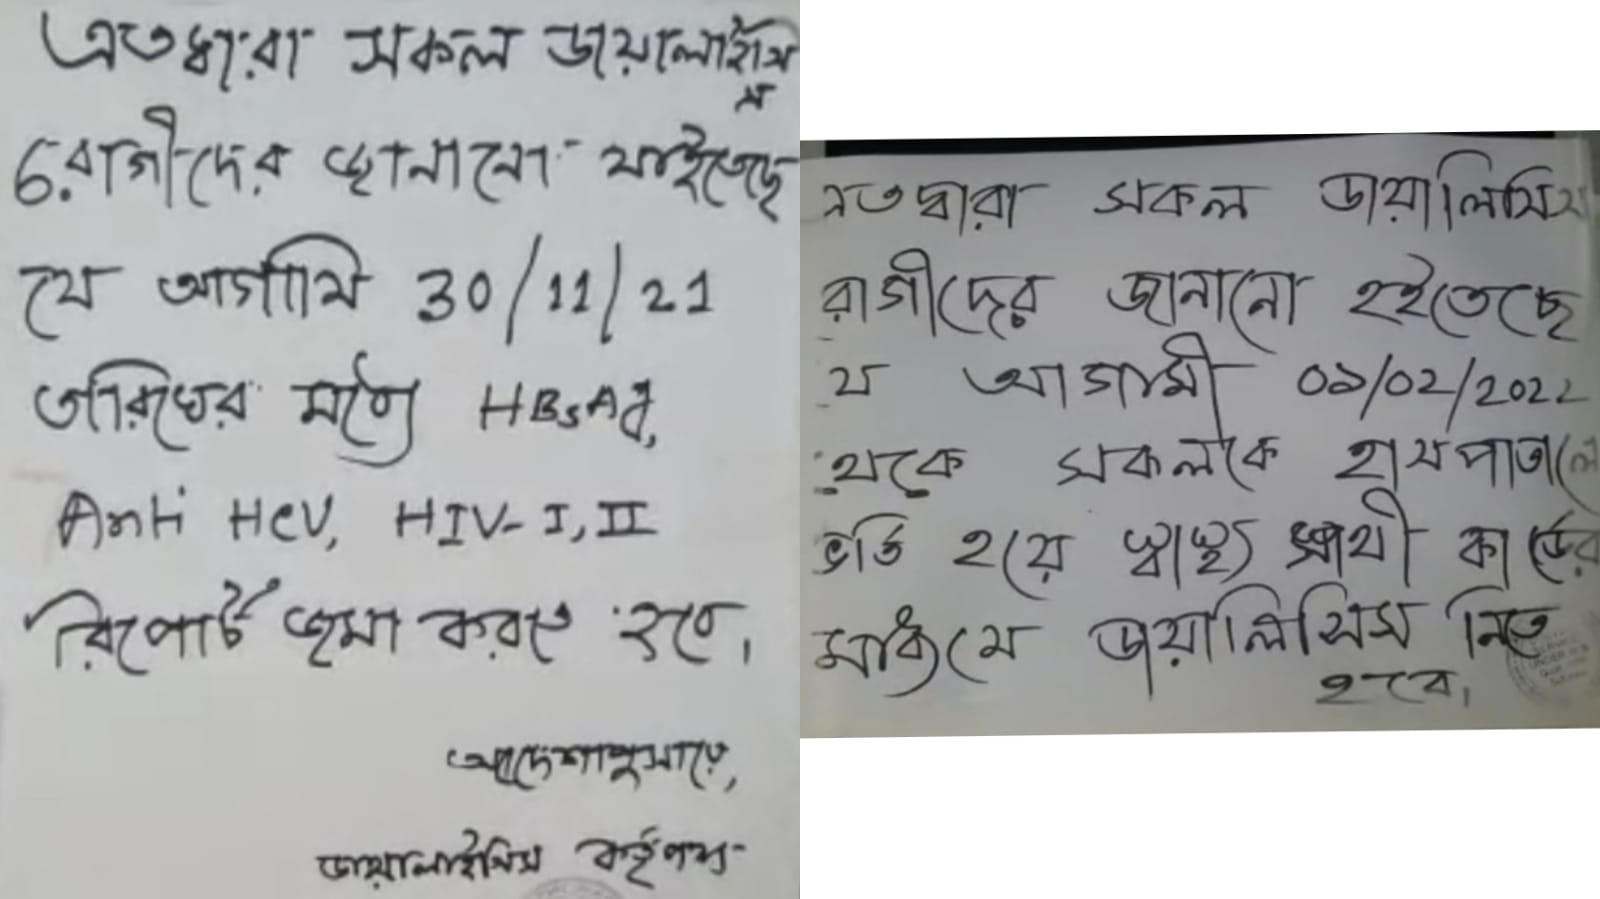 এতদ্বারা সকল ডায়ালাইসিস
রোগীদের জানানো যাইতেছে
যে আগামি 30/11/21
তারিখের মধ্যে HBsAg,
Anti HCV, HIV-I, II
রিপোর্ট জমা করতে হবে।
আদেশানুসারে,
ডায়ালাইসিস কর্তৃপক্ষ
এতদ্বারা সকল ডায়ালিসিস
রোগীদের জানানো হইতেছে
যে আগামী ০১/০২/2022
থেকে সকলকে হাসপাতালে
ভর্তি হয়ে স্বাস্থ্য সাথী কার্ডের
মাধ্যমে ডায়ালিসিস নিতে
হবে।